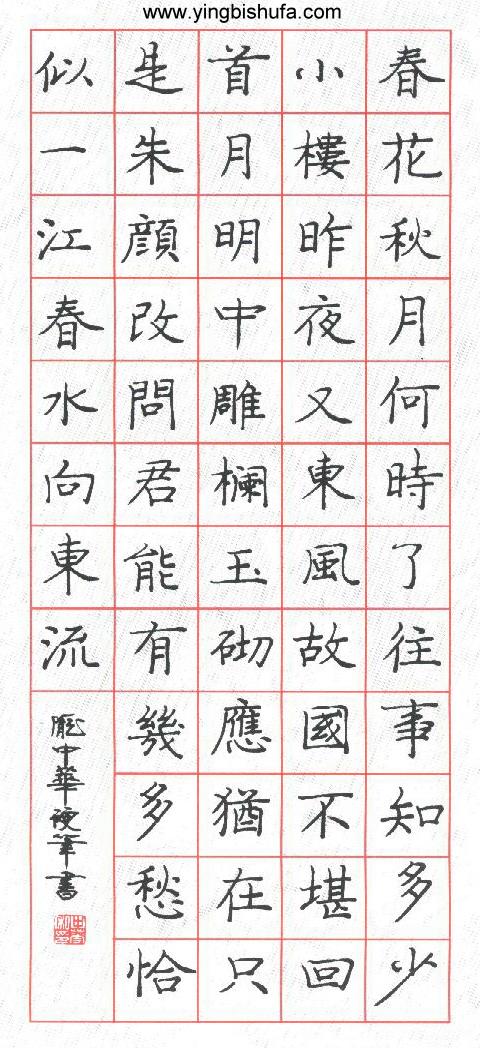 www.yingbishufa.com
春花秋月何時了往事知多少
小樓昨夜又東風故國不堪回
首月明中雕欄玉砌應猶在只
是朱顔改問君能有幾多愁恰
似一江春水向東流
龐中華硬筆書